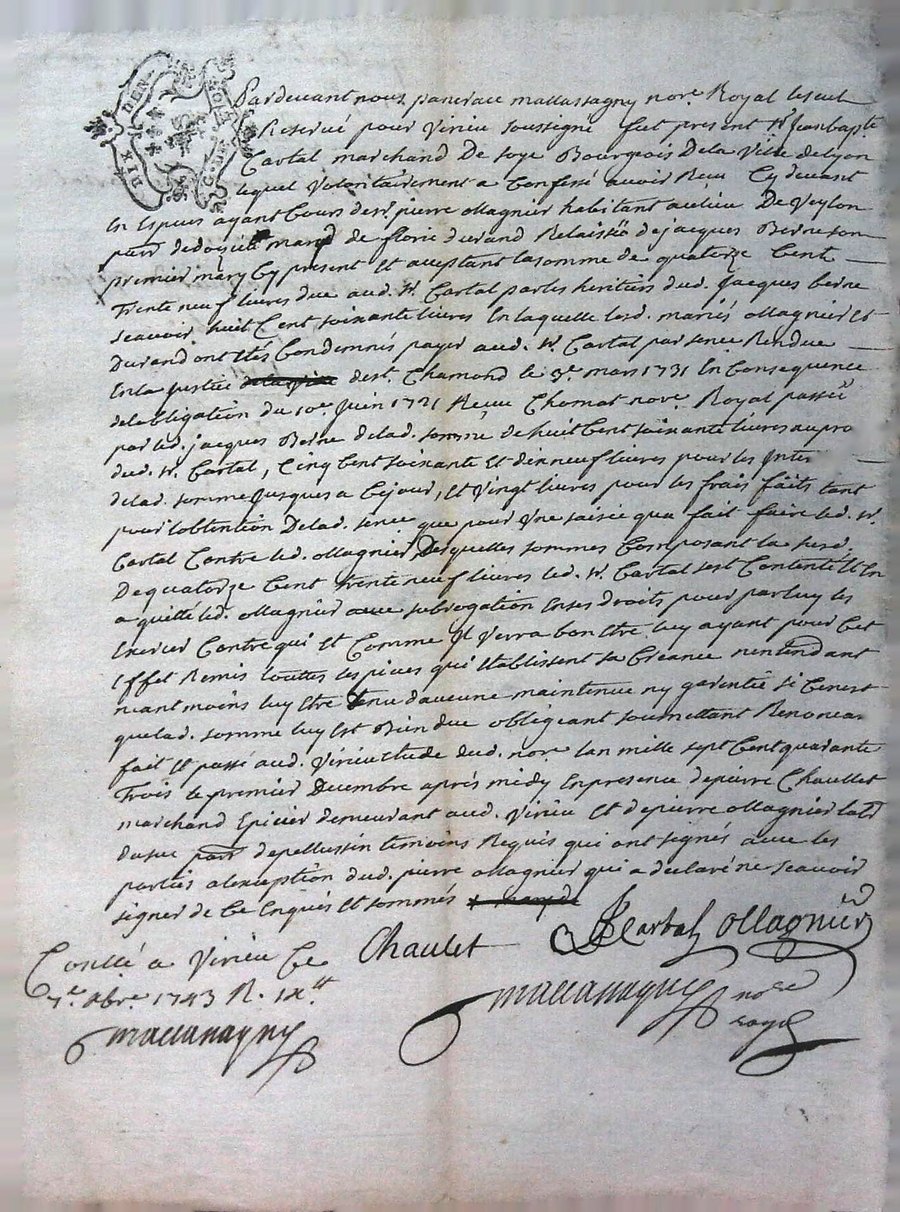 DIX DEN.
G. DE LION
Pardevant nous pancrace mallassagny nore. Royal le seul
Reservé pour Virieu soussigné fut present Sr. Jean bapte
Cartal marchand De soye Bourgeois De la Ville de lyon
lequel Volontairement a Confessé avoir Reçu Cy devant
En Especes ayant Cours de sr. pierre ollagnier habitant au lieu De Veylon
parr. de mary de florie durand Relaissée de jacques Berne son
premier mary Cy present Et acceptant la somme de quatorze Cent
Trente neuf livres due aud. Sr. Cartal par les heritiers dud. jacques berne
scavoir huit Cent soixante livres En laquelle lesd. mariés ollagnier Et
Durand ont Etés Condemnés payer aud. Sr. Cartal par sence Rendue
En la justice de st. Chamond le 3e. mars 1731 En Consequence
de lobligation du 10e. juin 1721 Reçue Chomat nore. Royal passée
par led. jacques Berne de lad. somme de huit Cent soixante livres au pro
dud. Sr. Cartal, Cinq Cent soixante Et dix neuf livres pour les Inter
de lad. somme jusques a Ce jour, Et Vingt livres pour les frais faits tant
pour lobtention De lad. sence que pour Une saisie qua fait faire led. Sr.
Cartal Contre led. ollagnier Desquelles sommes Composant la susd.
De quatorze Cent trente neuf livres led. Sr. Cartal sest Contenté Et En
a quitté led. ollagnier avec subrogation En ses droits pour par luy les
Exercer Contre qui Et Comme Il Verra bon Etre luy ayant pour Cet
Effet Remis touttes les pieces qui Etablissent sa Creance nentendant
neantmoins luy Etre tenu daucune maintenue ny garentie si Ce nest
que lad. somme luy Est Bien due obligeant soumettant Renoncea
fait Et passé aud. Virieu Etude dud. nore. lan mille sept Cent quarante
Trois le premier Decembre aprés midy En presence de pierre Chaullet
marchand Epicier demeurant aud. Virieu Et de pierre ollagnier
parr. de pellussin temoins Requis qui ont signés avec les
parties a lexception dud. pierre ollagnier qui a declaré ne scavoir
signer de Ce Enquis Et sommés
Chaulet Cartal ollagnier
Conllé a Virieu Ce
7e. xbre. 1743 R.
mallassagny
mallassagny nore
royal